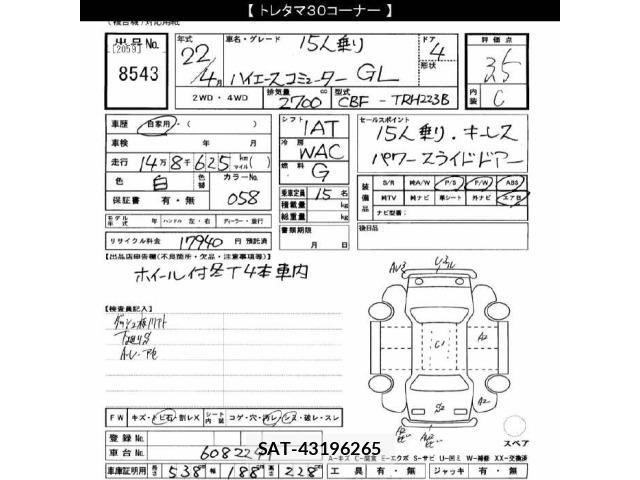 【 トレタマ30コーナー 】
(複合機)対応用紙
出品No. [2059] 8543
年式 22/4月
車名・グレード 15人乗り ハイエースコミューター GL
ドア 4 形状
評価点 3.5
内装 C
2WD・4WD
排気量 2700 cc
型式 CBF-TRH223B
車歴 自家用・( )
車検 年 月
走行 14万8千625 km マイル ( )
色 白 色替 カラーNo. 058
保証書 有・無
モデル年式 年 ハンドル 左・右 ディーラー・並行
リサイクル料金 17940 円 預託済
シフト 1AT
冷房 WAC
燃料 G
乗車定員 15 名
積載量 kg
総重量 kg
書類期限 月 日
セールスポイント
15人乗り・キーレス
パワースライドドアー
装備品 S/R 純A/W P/S P/W ABS
純TV 純ナビ 革シート 外ナビ エアB
ナビ型番:
後日品
【出品店申告欄(不良箇所・欠品・注意事項等)】
ホイール付冬T4本車内
【検査員記入】
A2
C1
A2
S2
FW キズ・トビ石・割レX シート内装 コゲ・穴・汚レ・シミ・破レ・スレ
登録No.
車台No.
スペア
SAT-43196265
A-キズ E-エクボ S-サビ U-凹ミ W-補修 XX-交換済
車庫証明用 長さ 538 幅 188 高さ 228 工具 有・無 ジャッキ 有・無